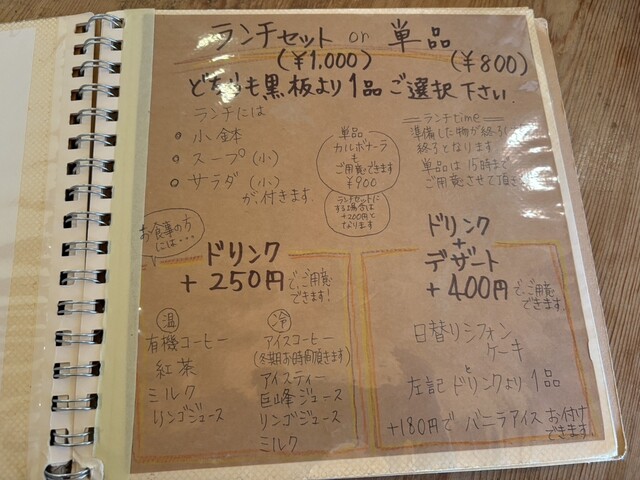 ランチセット or 単品
(¥1,000) (¥800)
どちらも黒板より1品ご選択下さい.
ランチには
• 小鉢
• スープ(小)
• サラダ(小)
が付きます.
単品
カルボナーラ
も
ご用意できます
¥900
ランチセットに
する場合は
+200円と
なります
ランチtime
準備した物が終り
終了となります
単品は15時まで
ご用意させて頂き
お食事の方
には・・・
ドリンク
+250円で、ご用意
できます!
温
有機コーヒー
紅茶
ミルク
リンゴジュース
冷
アイスコーヒー
(冬期お時間頂きます)
アイスティー
巨峰ジュース
リンゴジュース
ミルク
ドリンク
+
デザート
+400円で、ご用意
できます
日替りシフォン
ケーキ
と
左記ドリンクより1品
+180円でバニラアイスお付け
できます